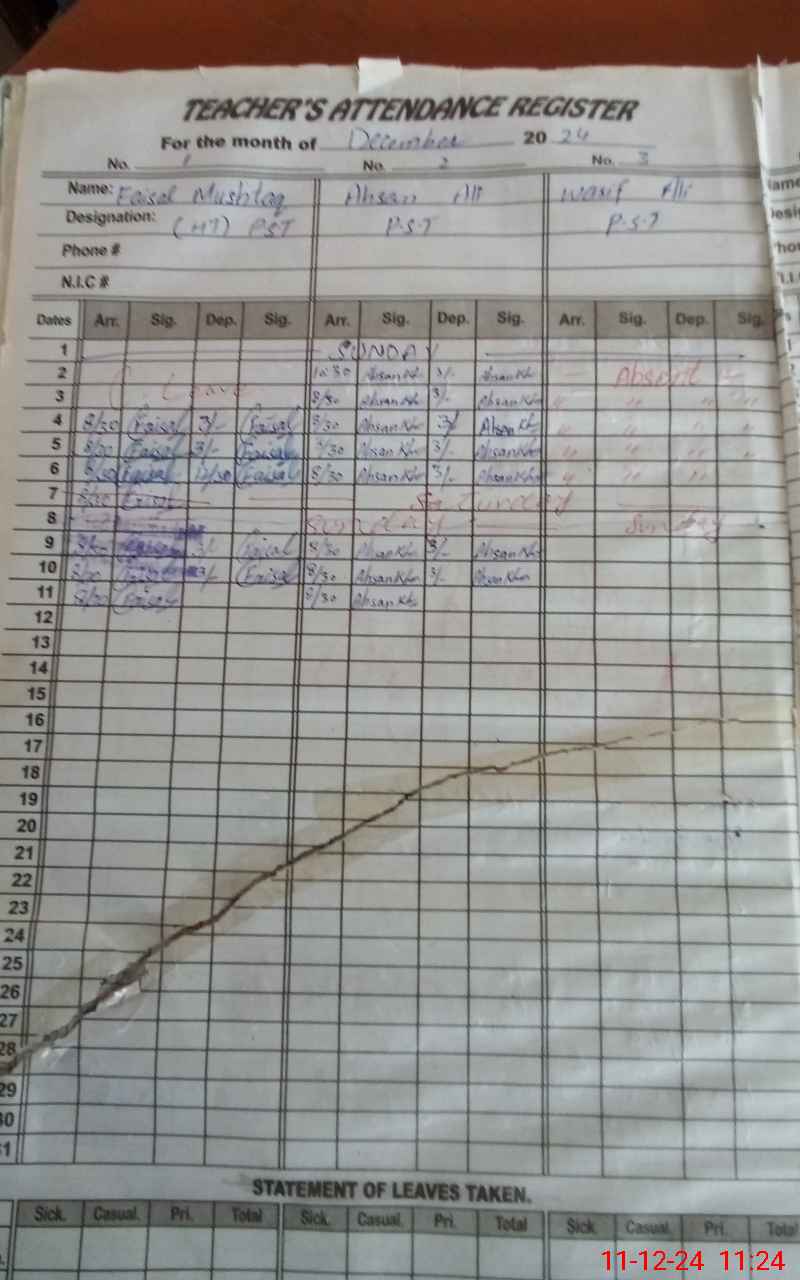 TEACHER'S ATTENDANCE REGISTER
For the month of December 20 24
No. 1 No. 2 No. 3
Name: Faisal Mushtaq Ahsan Ali Wasif Ali
Designation: (HT) PST P.S.T P.S.T
Phone #
N.I.C #
Dates Arr. Sig. Dep. Sig. Arr. Sig. Dep. Sig. Arr. Sig. Dep. Sig.
1 SUNDAY
2 10:30 AhsanKh 3/- AhsanKh Absent
3 Leave 8/30 AhsanKh 3/- AhsanKh " " " "
4 8/30 Faisal 3/- Faisal 8/30 AhsanKh 3/- AhsanKh " " " "
5 8/30 Faisal 3/- Faisal 8/30 AhsanKh 3/- AhsanKh " " " "
6 8/30 Faisal 12/30 Faisal 8/30 AhsanKh 3/- AhsanKh " " "
7 8/30 Faisal Saturday
8 Sunday Sunday
9 3/- Faisal 8/30 AhsanKh 3/- AhsanKh
10 8/30 3/- Faisal 8/30 AhsanKh 3/- AhsanKh
11 8/30 Faisal 8/30 AhsanKh
12
13
14
15
16
17
18
19
20
21
22
23
24
25
26
27
28
29
30
31
STATEMENT OF LEAVES TAKEN.
Sick. Casual. Pri. Total Sick. Casual. Pri. Total Sick. Casual. Pri. Total
11-12-24 11:24